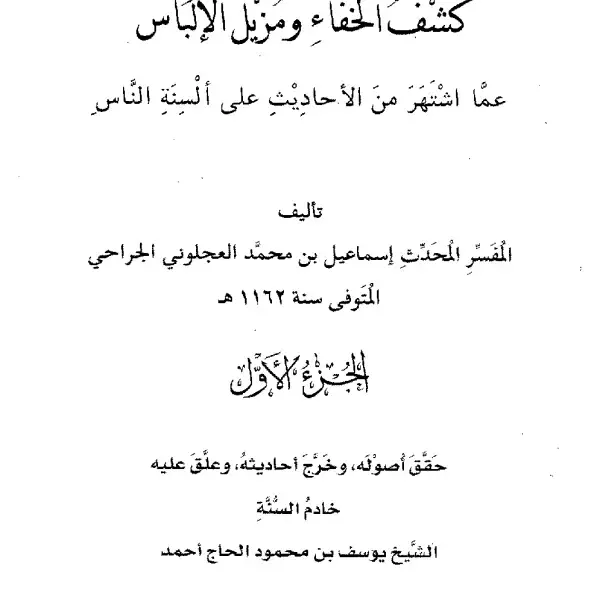 كشْفُ الخفَاءِ ومُزيلُ الإلبَاس
عمَّا اشْتَهَرَ منَ الأحاديْثِ على ألْسِنَةِ النَّاسِ
تأليف
المُفَسِّرِ المُحَدِّثِ إسماعيل بن محمَّد العجلوني الجراحي
المُتَوفى سنة ١١٦٢ هـ
الجُزءُ الأَوَّل
حَقَّقَ أُصوْلَه، وخَرَّجَ أحاديثهُ، وعلَّقَ عليه
خادمُ السُّنَّةِ
الشَّيخ يوسف بن محمود الحاج أحمد